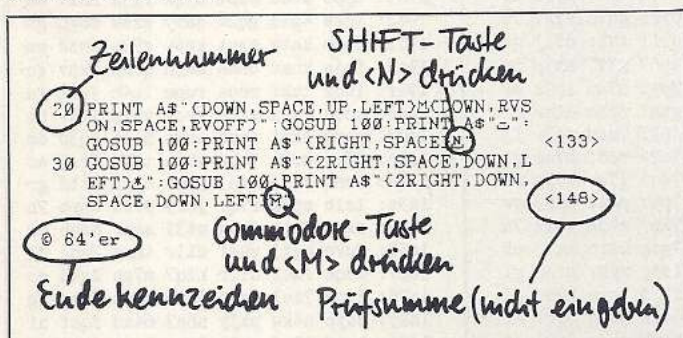 Zeilennummer
SHIFT-Taste
und <N> drücken
20 PRINT A$"{DOWN,SPACE,UP,LEFT}M{DOWN,RVS
ON,SPACE,RVOFF}":GOSUB 100:PRINT A$"-":
GOSUB 100:PRINT A$"{RIGHT,SPACE}N" <133>
30 GOSUB 100:PRINT A$"{2RIGHT,SPACE,DOWN,L
EFT}±":GOSUB 100:PRINT A$"{2RIGHT,DOWN,
SPACE,DOWN,LEFT}M" <148>
© 64'er
Commodore-Taste
und <M> drücken
Endekennzeichen
Prüfsumme (nicht eingeben)